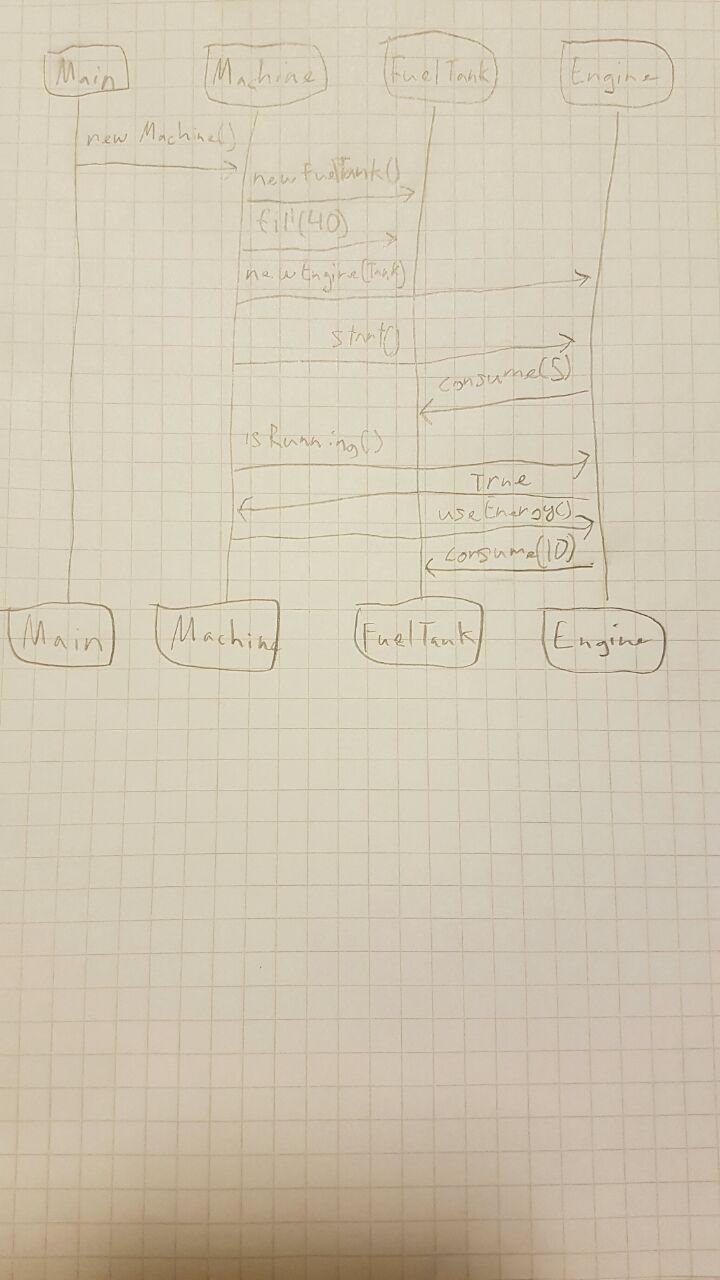 Main Machine FuelTank Engine
new Machine()
new FuelTank()
fill(40)
new Engine(Tank)
start()
consume(5)
isRunning()
True
useEnergy()
consume(10)
Main Machine FuelTank Engine